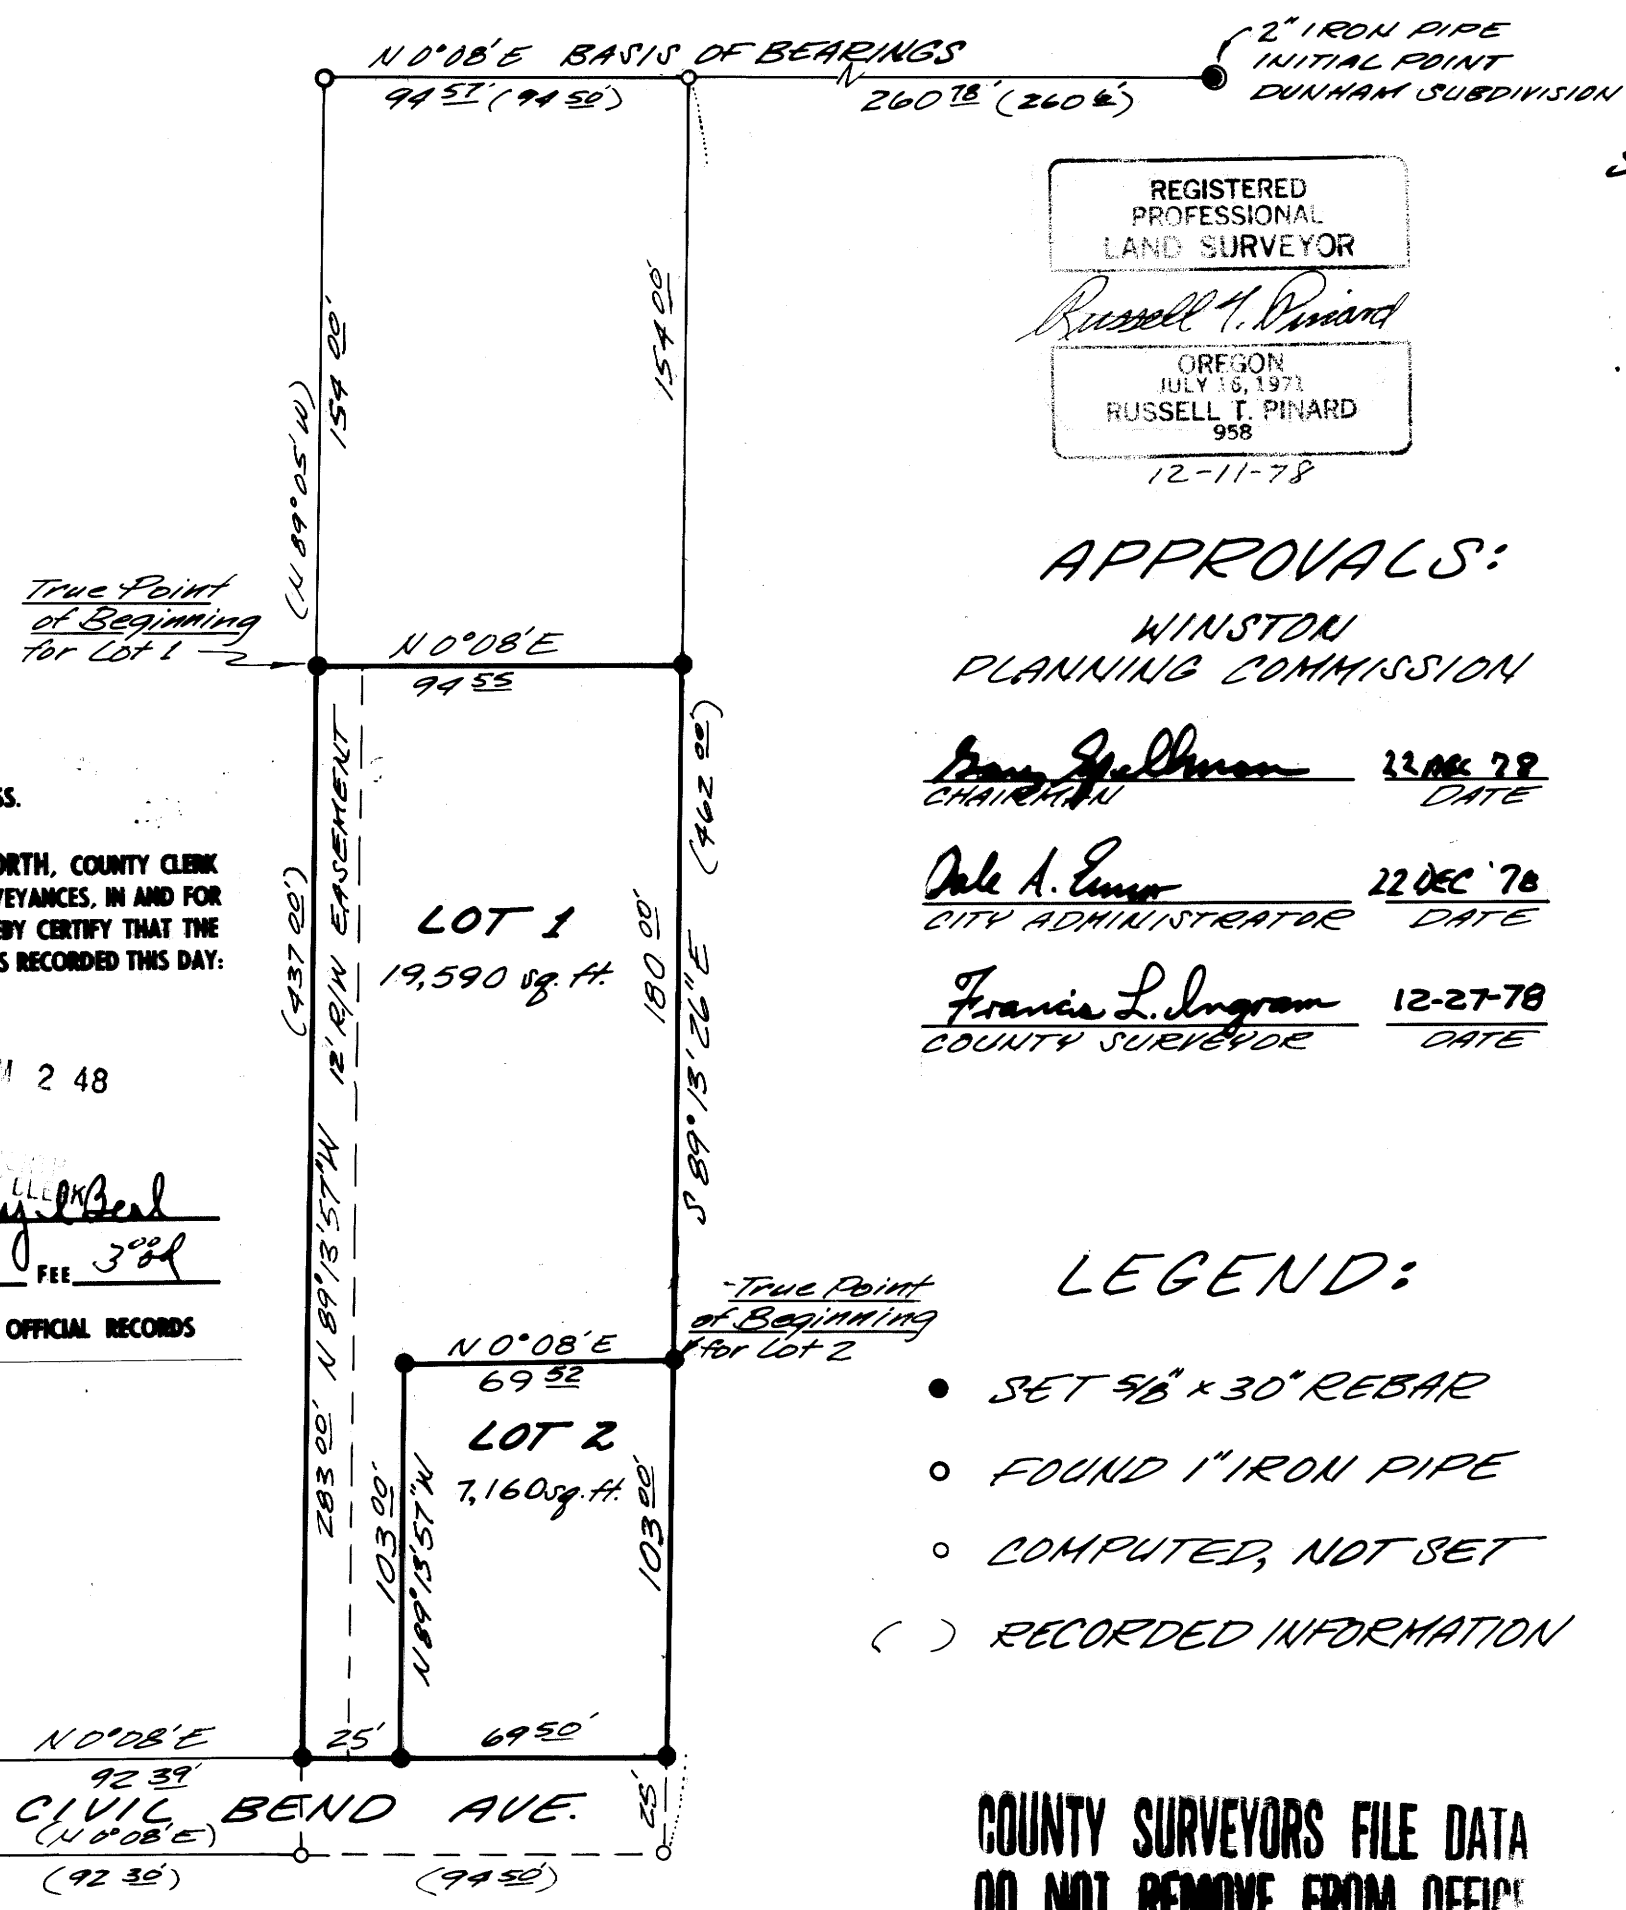 N 0°08'E BASIS OF BEARINGS
94 57' (94 50')
260 78' (260 6')
2" IRON PIPE
INITIAL POINT
DUNHAM SUBDIVISION
REGISTERED
PROFESSIONAL
LAND SURVEYOR
Russell T. Pinard
OREGON
JULY 16, 1971
RUSSELL T. PINARD
958
12-11-78
154 00'
154 00'
(N 89°05'W)
True Point
of Beginning
for Lot 1
N 0°08'E
94 55
APPROVALS:
WINSTON
PLANNING COMMISSION
22 DEC 78
CHAIRMAN DATE
Dale A. 22 DEC '78
CITY ADMINISTRATOR DATE
Francis L. Ingram 12-27-78
COUNTY SURVEYOR DATE
SS.
ORTH, COUNTY CLERK
VEYANCES, IN AND FOR
EBY CERTIFY THAT THE
S RECORDED THIS DAY:
M 2 48
CLERK
Beal
FEE 3 00
OFFICIAL RECORDS
(437 00')
12' R/W EASEMENT
283 00' N 89°13'57"W
LOT 1
19,590 sq. ft.
180 00'
(462 00')
S 89°13'26"E
True Point
of Beginning
for Lot 2
N 0°08'E
69 52
LOT 2
7,160 sq. ft.
103 00'
N 89°13'57"W
103 00'
LEGEND:
SET 5/8" x 30" REBAR
FOUND 1" IRON PIPE
COMPUTED, NOT SET
( ) RECORDED INFORMATION
N 0°08'E
92 39'
25'
69 50'
25'
CIVIL BEND AVE.
(N 0°08'E)
(92 30')
(94 50')
COUNTY SURVEYORS FILE DATA
DO NOT REMOVE FROM OFFICE